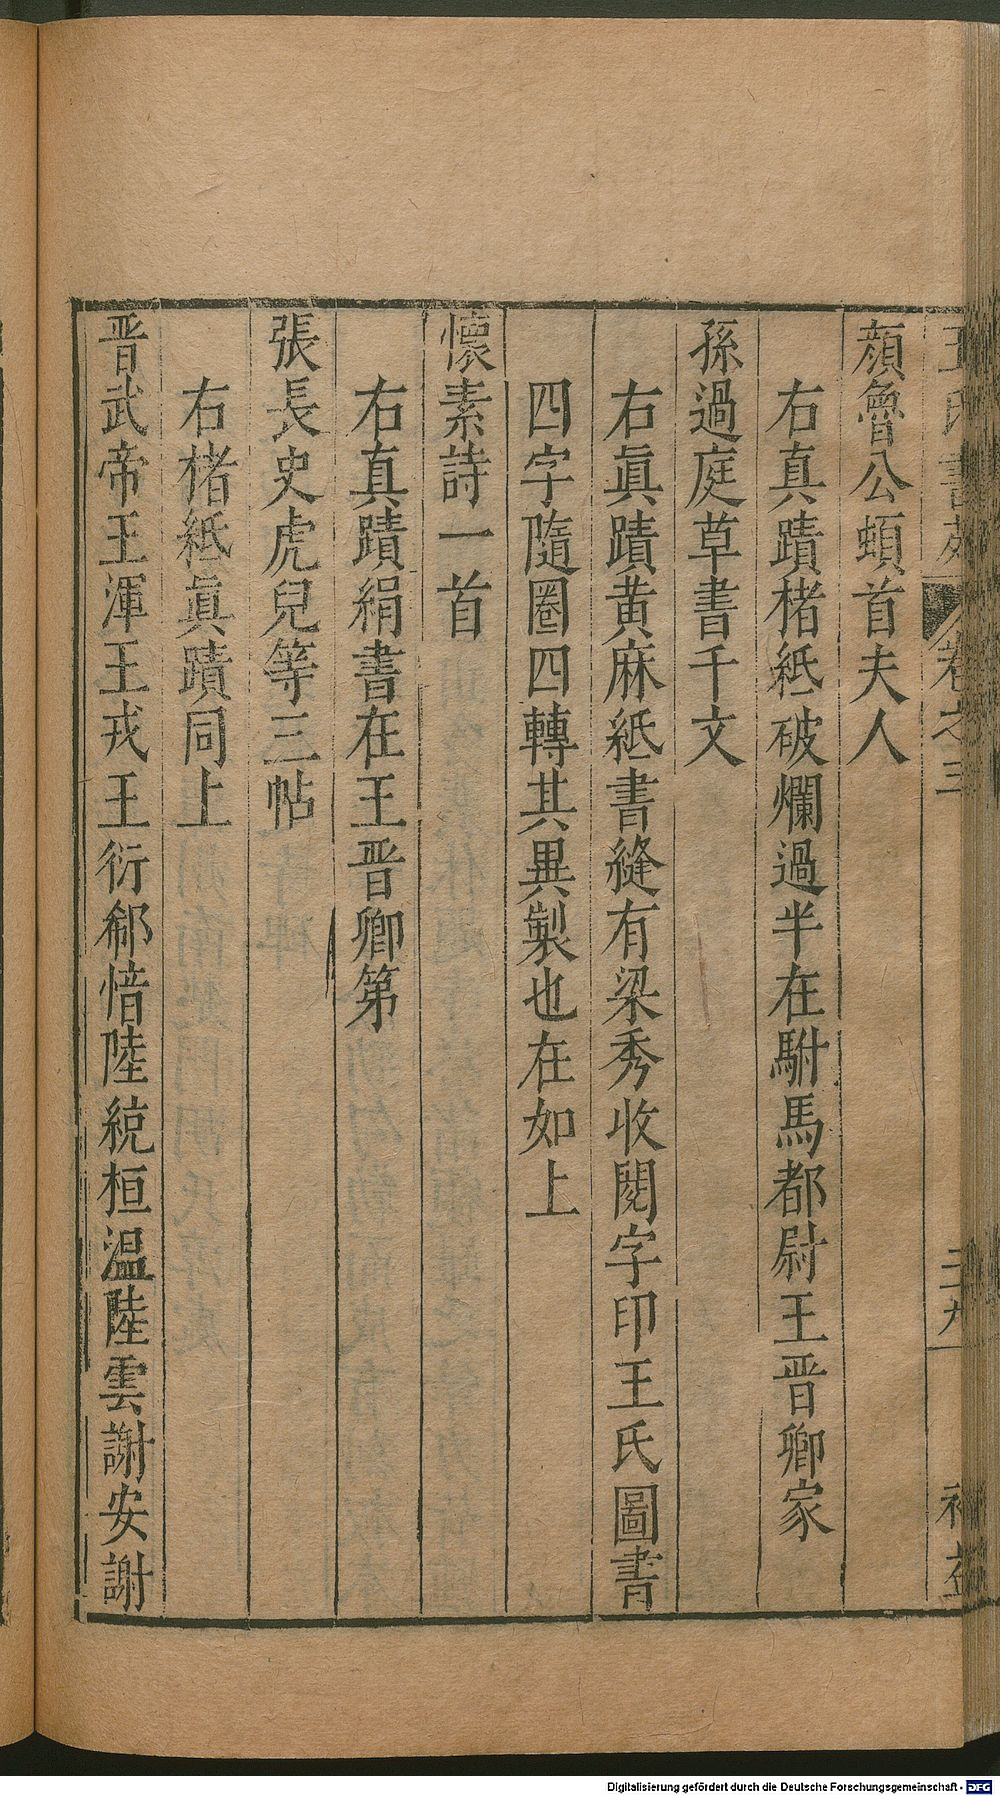 王氏書苑 卷之三 三九
顔魯公頓首夫人
右真蹟楮紙破爛過半在駙馬都尉王晉卿家
孫過庭草書千文
右眞蹟黄麻紙書縫有梁秀收閱字印王氏圖書
四字隨圏四轉其異製也在如上
懷素詩一首
右真蹟絹書在王晋卿第
張長史虎兒等三帖
右楮紙眞蹟同上
晋武帝王渾王戎王衍郗愔陸統桓温陸雲謝安謝
Digitalisierung gefördert durch die Deutsche Forschungsgemeinschaft - DFG